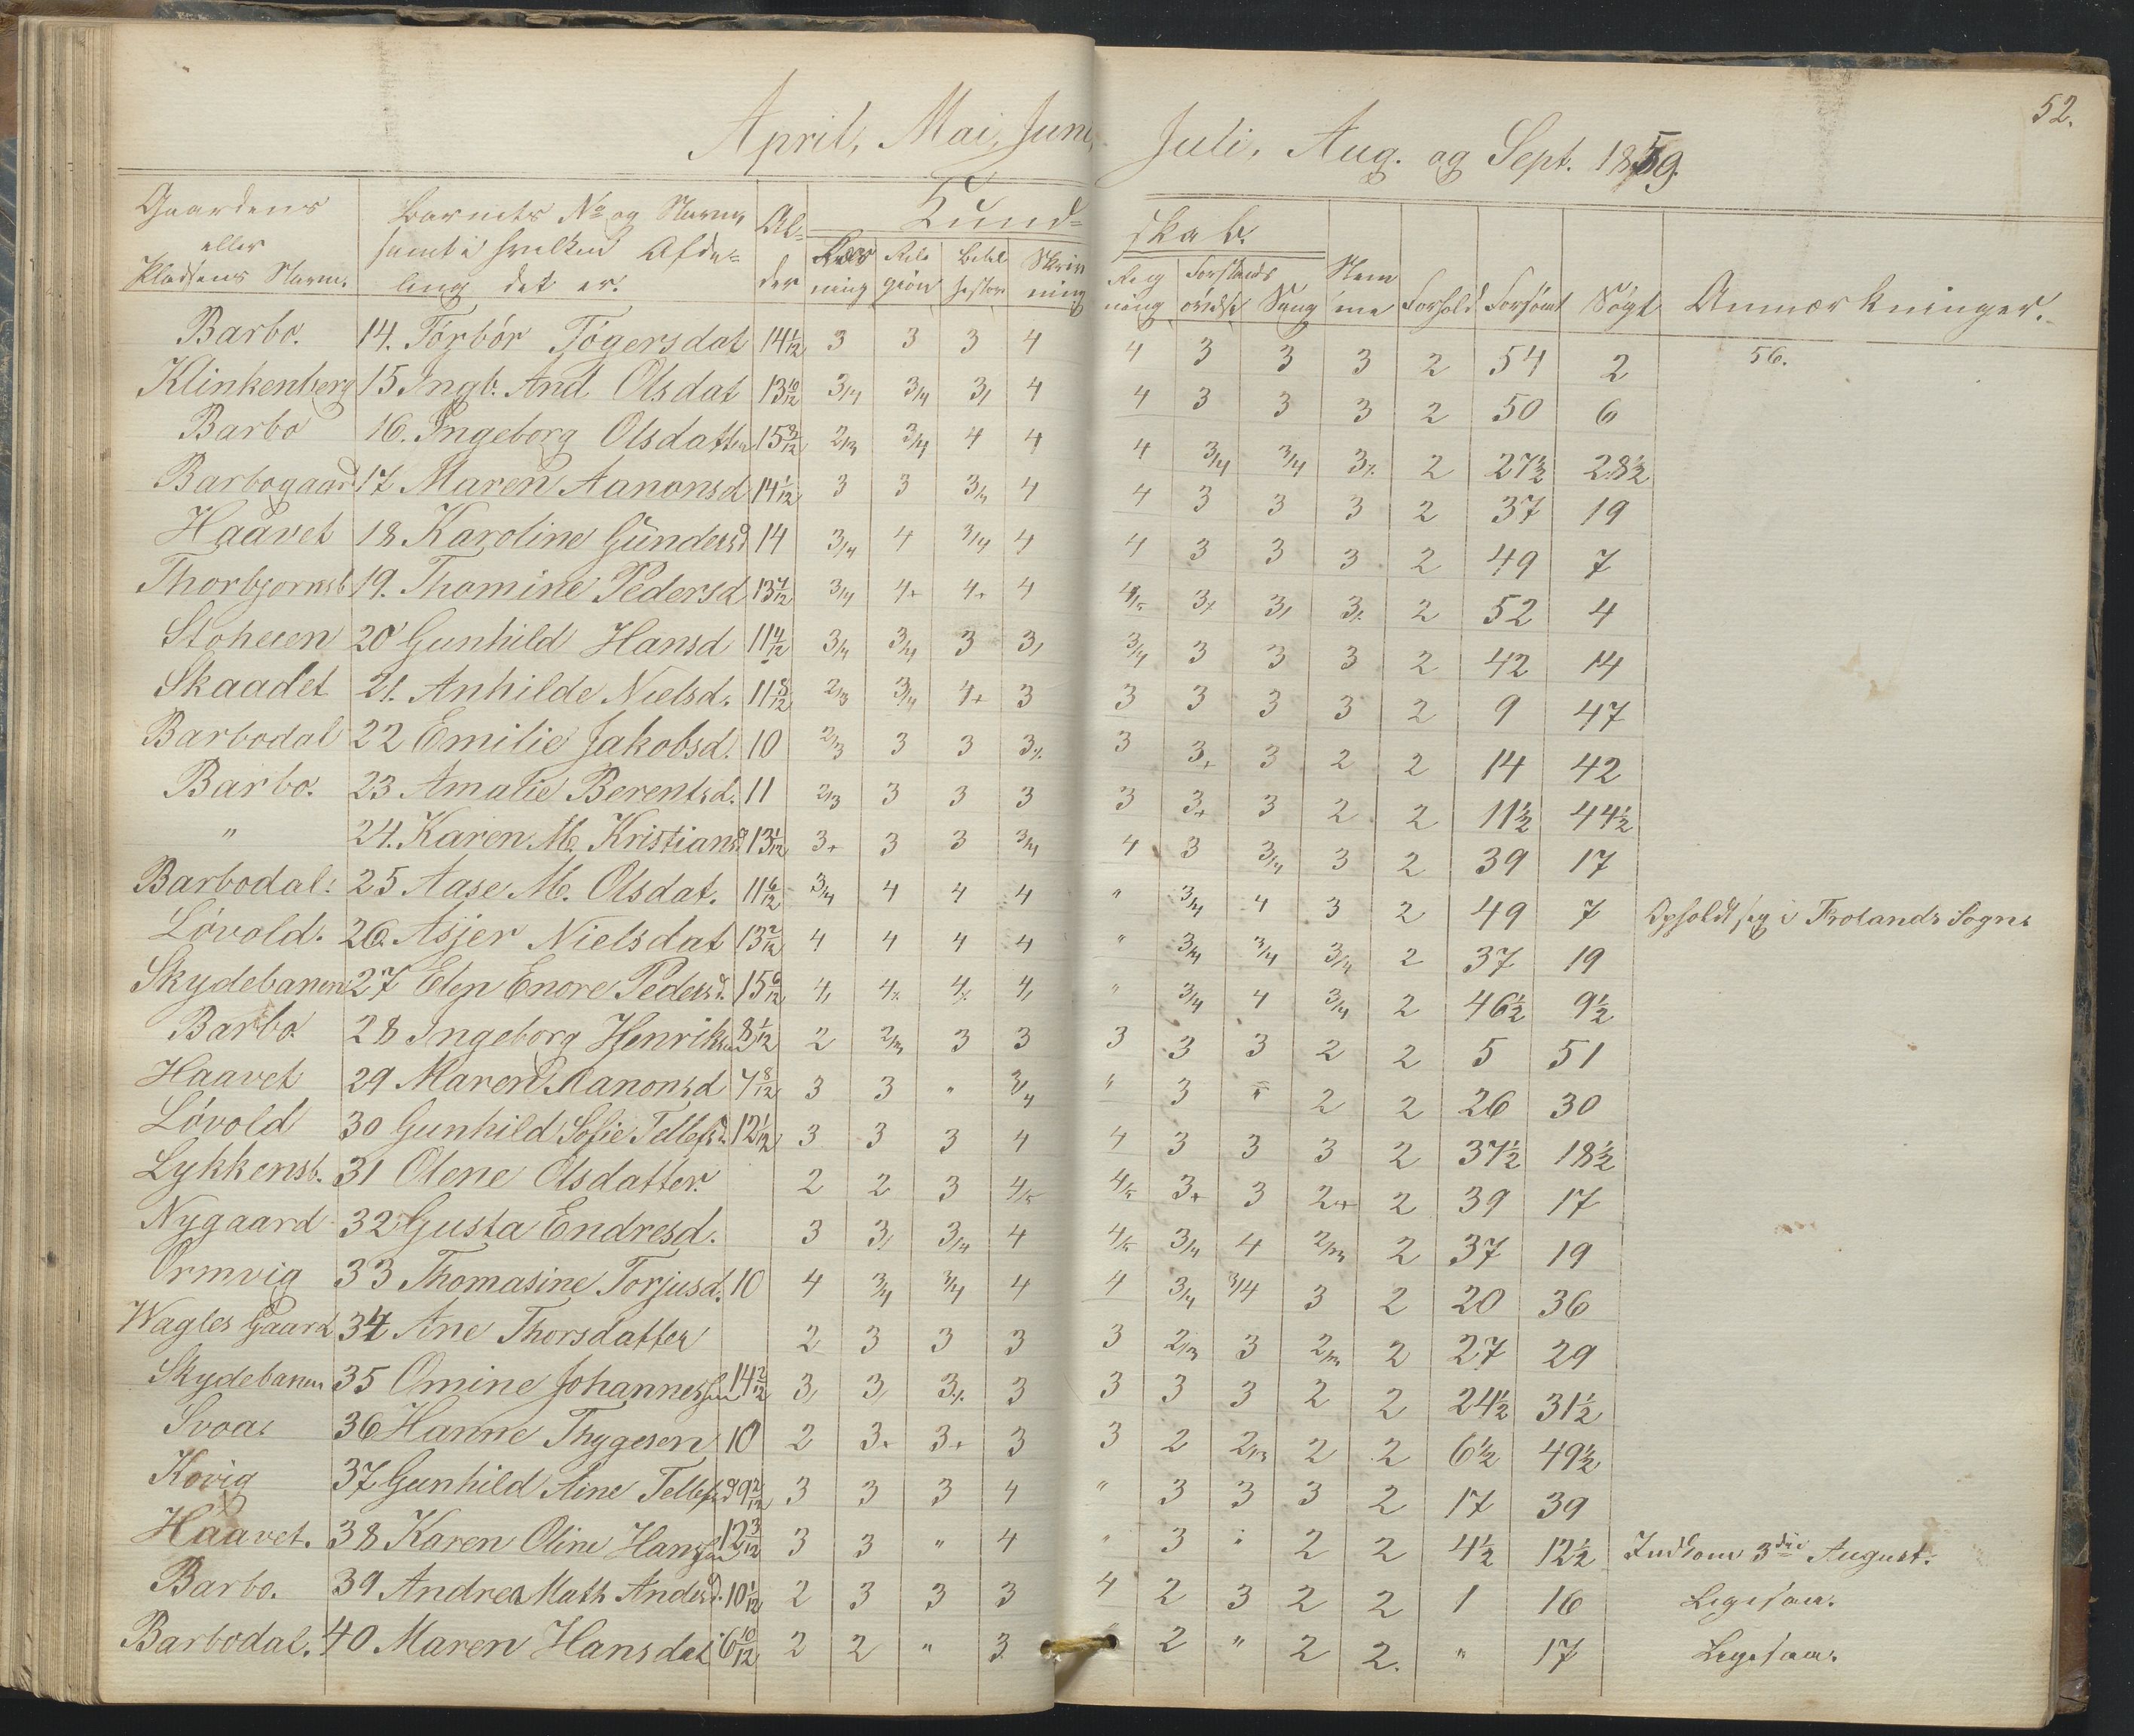 52.
April, Mai, Juni, Juli, Aug. og Sept. 1859.
Gaardens eller Pladsens Navn. | Barnets No og Navn, samt i hvilken Afdeling det er. | Alder | Kundskab. | Stemme | Forhold | Forsømt | Søgt | Anmærkninger.
Læsning | Religion | Bibelhistor | Skrivning | Regning | Forstandsøvelse | Sang
Barbo. 14. Törbör Tögersdat 14 1/12 3 3 3 4 4 3 3 3 2 54 2 56.
Klinkenberg 15 Ingb. And Olsdat 13 6/12 3/4 3/4 3, 4 4 3 3 3 2 50 6
Barbo 16. Ingeborg Olsdatter 15 3/12 2/3 3/4 4 4 4 3/4 3/4 3% 2 27½ 28½
Barbogaard 17 Maren Aanonsd 14 1/12 3 3 3/4 4 4 3 3 3 2 37 19
Haavet 18 Karoline Gundersd 14 3/4 4 3/4 4 4 3 3 3 2 49 7
Thorbjornsb 19. Thomine Pedersd 13 7/12 3/4 4+ 4+ 4 4/5 3% 3, 3% 2 52 4
Stoheien 20 Gunhild Hansd 11 4/12 3/4 3/4 3 3, 3/4 3 3 3 2 42 14
Skaadet 21. Anhilde Nielsd. 11 8/12 2/3 3/4 4+ 3 3 3 3 3 2 9 47
Barbodal 22 Emilie Jakobsd. 10 2/3 3 3 3% 3 3+ 3 2 2 14 42
Barbo. 23 Amalie Berentsd. 11 2/3 3 3 3 3 3+ 3 2 2 11½ 44½
" 24. Karen M. Kristiansd 13 1/12 3+ 3 3 3/4 4 3 3/4 3 2 39 17
Barbodal. 25 Aase M. Olsdat. 11 6/12 3/4 4 4 4 " 3/4 4 3 2 49 7 Opholdt sig i Frolands Sogn
Lövold. 26. Asjer Nielsdat 13 2/12 4 4 4 4 " 3/4 3/4 3/4 2 37 19
Skydebanen 27 Elen Enore Pedersd. 15 6/12 4, 4% 4% 4, " 3/4 4 3/4 2 46½ 9½
Barbo 28 Ingeborg Henriksen 8 1/12 2 2/3 3 3 3 3 3 2 2 5 51
Haavet 29 Maren Aanonsd 7 8/12 3 3 " 3/4 " 3 " 2 2 26 30
Lövold 30 Gunhild Sofie Tellefsd. 12 1/12 3 3 3 4 4 3 3 3 2 37½ 18½
Lykkensb. 31 Olene Olsdatter. 2 2 3 4/5 4/5 3+ 3 2+ 2 39 17
Nygaard 32 Gusta Endresd. 3 3, 3/4 4 4/5 3/4 4 2/3 2 37 19
Ormvig 33 Thomasine Torjusd. 10 4 3/4 3/4 4 4 3/4 3/4 3 2 20 36
Wagles Gaard 34 Ane Thorsdatter 2 3 3 3 3 2/3 3 2/3 2 27 29
Skydebanen 35 Omine Johannessen 14 2/12 3, 3, 3% 3 3 3 3 2 2 24½ 31½
Svoa. 36 Hanne Thygesen 10 2 3+ 3+ 3 3 2 2/3 2 2 6½ 49½
Kovig 37 Gunhild Aine Tellefsd 9 2/12 3 3 3 4 " 3 3 3 2 17 39
Haavet. 38 Karen Oline Hanssen 12 3/12 3 3 " 4 " 3 " 2 2 4½ 12½ Indkom 3die August.
Barbo. 39 Andrea Math Andersd. 10 1/12 2 3 3 3 4 2 3 2 2 1 16 Ligesaa.
Barbodal. 40 Maren Hansdat 6 10/12 2 2 " 3 " 2 " 2 2. " 17 Ligesaa.